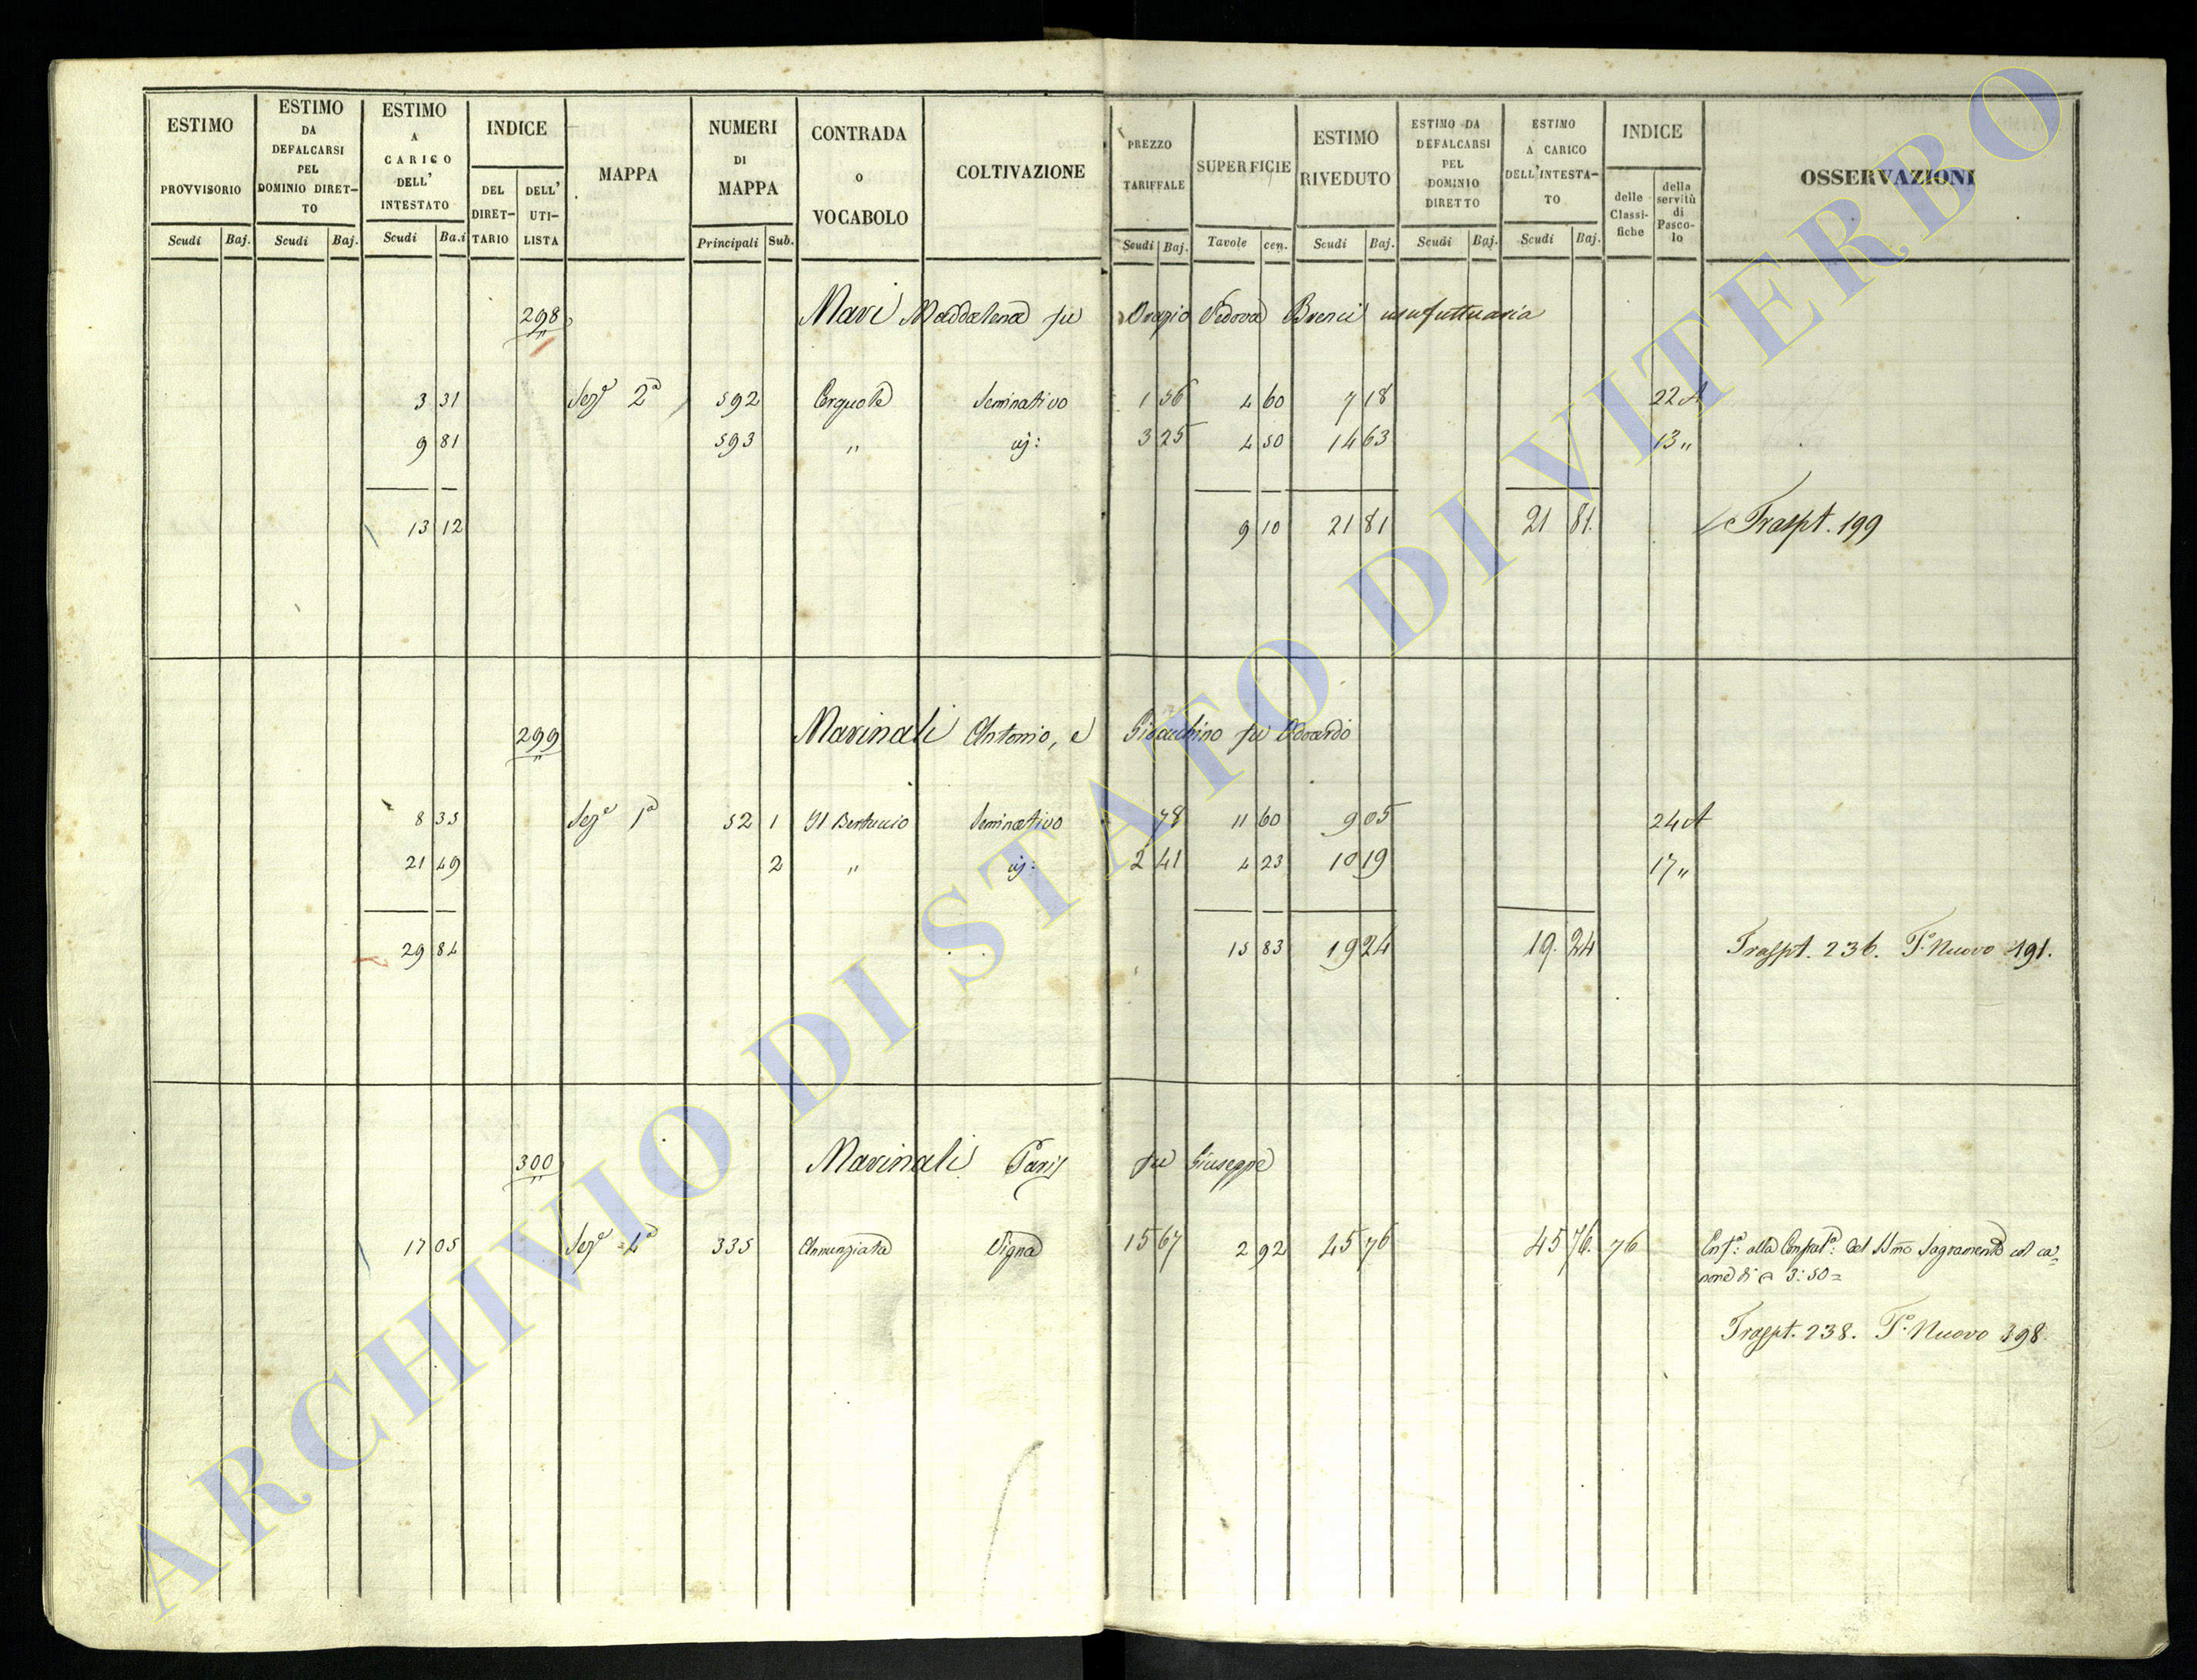 ESTIMO PROVVISORIO Scudi Baj.
ESTIMO DA DEFALCARSI PEL DOMINIO DIRETTO Scudi Baj.
ESTIMO A CARICO DELL' INTESTATO Scudi Ba.i
INDICE DEL DIRET-TARIO DELL' UTI-LISTA
MAPPA
NUMERI DI MAPPA Principali Sub.
CONTRADA o VOCABOLO
COLTIVAZIONE
PREZZO TARIFFALE Scudi Baj.
SUPERFICIE Tavole cen.
ESTIMO RIVEDUTO Scudi Baj.
ESTIMO DA DEFALCARSI PEL DOMINIO DIRETTO Scudi Baj.
ESTIMO A CARICO DELL'INTESTA-TO Scudi Baj.
INDICE delle Classi-fiche della servitù di Pasco-lo
OSSERVAZIONI
298 Mari Maddalena fu Orazio Vedova Brenci usufruttuaria
3 31 Sez.e 2a 592 Cerquola Seminativo 1 56 4 60 7 18 22 A
9 81 593 " " 3 25 4 50 14 63 13 "
13 12 9 10 21 81 21 81. Traspt. 199
299 Marinali Antonio, e Gioacchino fu Odoardo
8 35 Sez.e 1a 52 1 Il Bertuccio Seminativo 78 11 60 9 05 24 A
21 49 2 " " 2 41 4 23 10 19 17 "
29 84 15 83 19 24 19. 24 Traspt. 236. P. Nuovo 191.
300 Marinali Paris fu Giuseppe
17 05 Sez.e 4a 335 Annunziata Vigna 15 67 2 92 45 76 45 76. 76 Enf.a: alla Confrat.a: del SSmo Sagramento col ca=
none di 3:50=
Traspt. 238. P. Nuovo 398.
ARCHIVIO DI STATO DI VITERBO